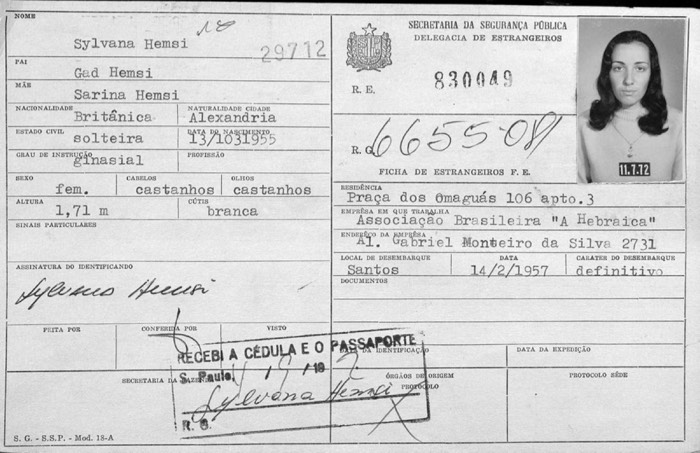 NOME
Sylvana Hemsi
29712
PAI
Gad Hemsi
MÃE
Sarina Hemsi
NACIONALIDADE
NATURALIDADE CIDADE
Britânica
Alexandria
ESTADO CIVIL
DATA DO NASCIMENTO
solteira
13/1031955
GRAU DE INSTRUÇÃO
PROFISSÃO
ginasial
SEXO
CABELOS
OLHOS
fem.
castanhos
castanhos
ALTURA
CÚTIS
1,71 m
branca
SINAIS PARTICULARES
ASSINATURA DO IDENTIFICANDO
Sylvana Hemsi
FEITA POR
CONFERIDA POR
VISTO
SECRETARIA DA FAZENDA
S. G. - S.S.P. - Mod. 18-A
SECRETARIA DA SEGURANÇA PÚBLICA
DELEGACIA DE ESTRANGEIROS
R. E.
830049
R. G.
6655081
FICHA DE ESTRANGEIROS F. E.
11.7.72
RESIDÊNCIA
Praça dos Omaguás 106 apto.3
EMPRÊSA EM QUE TRABALHA
Associação Brasileira "A Hebraica"
ENDERÊÇO DA EMPRÊSA
Al. Gabriel Monteiro da Silva 2731
LOCAL DE DESEMBARQUE
DATA
CARATER DO DESEMBARQUE
Santos
14/2/1957
definitivo
DOCUMENTOS
DATA DA IDENTIFICAÇÃO
DATA DA EXPEDIÇÃO
ÓRGÃOS DE ORIGEM
PROTOCOLO
PROTOCOLO SÉDE
RECEBI A CÉDULA E O PASSAPORTE
S. Paulo,
Sylvana Hemsi
R. G.